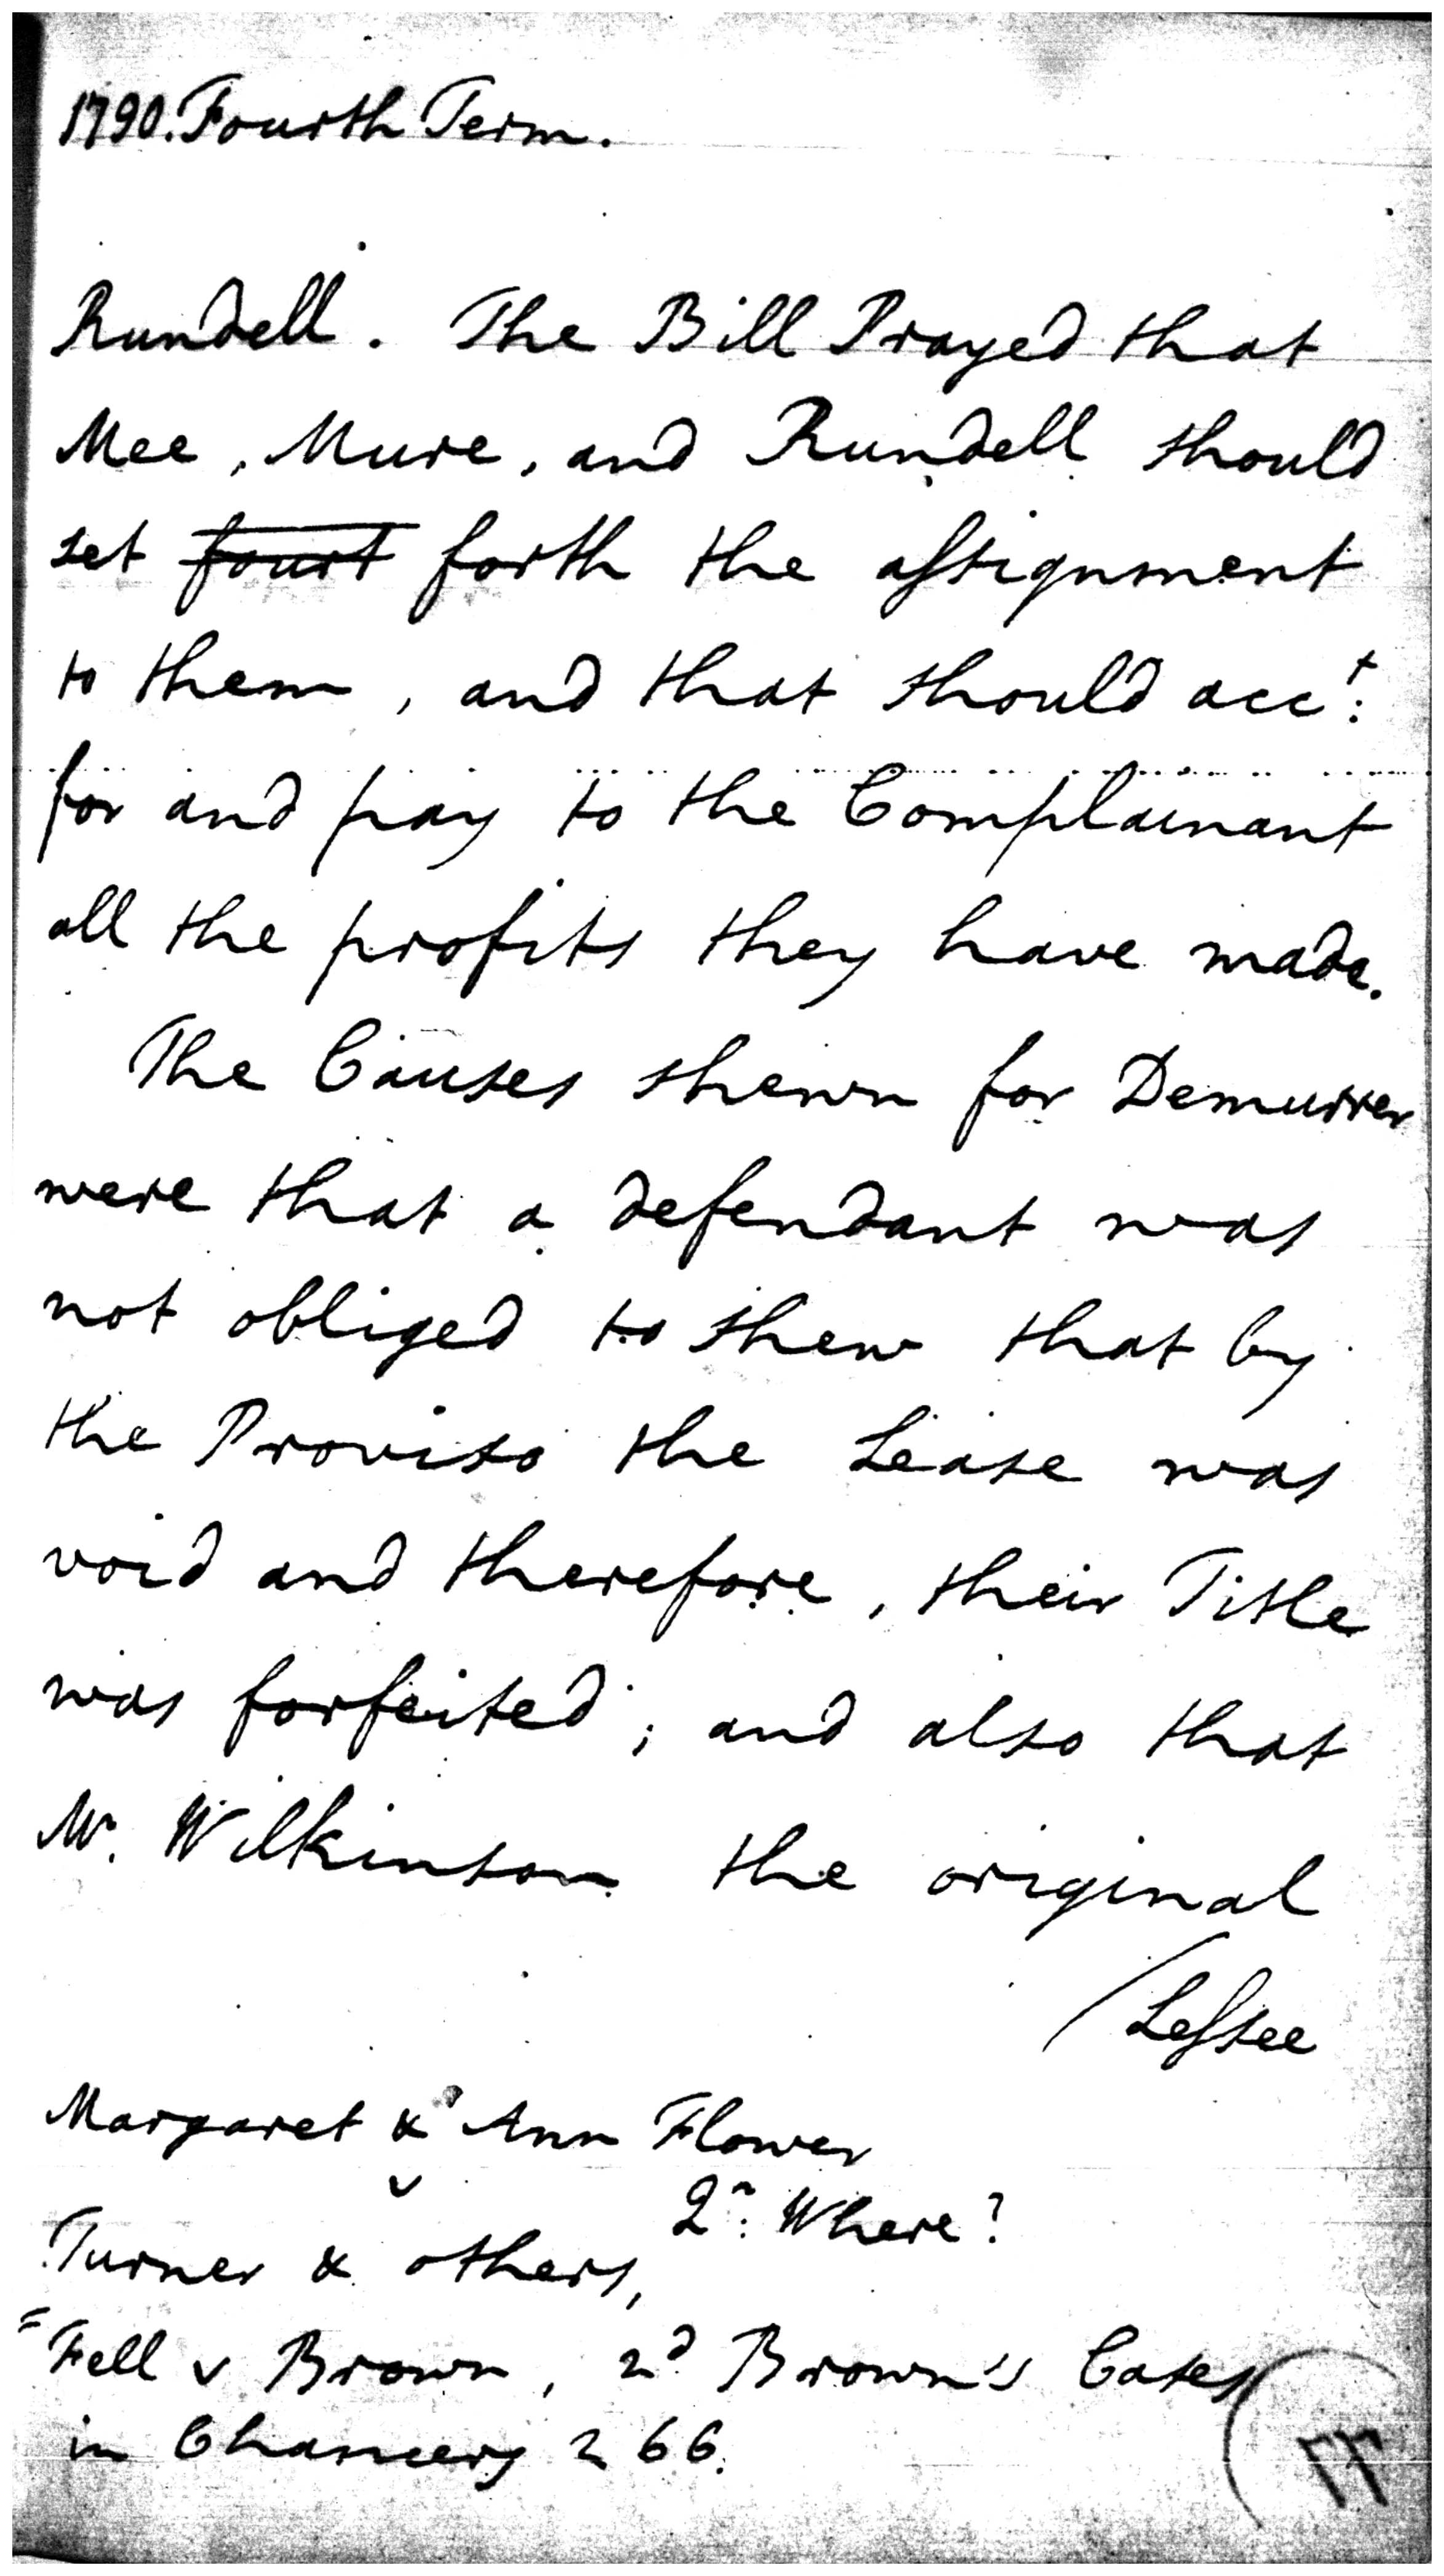 1790. Fourth Term.
Rundell. The Bill Prayed that
Mee, Mure, and Rundell should
set fourt forth the assignment
to them, and that should acct:
for and pay to the Complainant
all the profits they have made.
The Causes shewn for Demurrer
were that a defendant was
not obliged to shew that by
the Proviso the Lease was
void and therefore, their Title
was forfeited; and also that
Mr. Wilkinson the original
/Lessee
Margaret & Ann Flower
v
Turner & others, Qr: Where?
=Fell v Brown, 2d Brown's Cases
in Chancery 266.